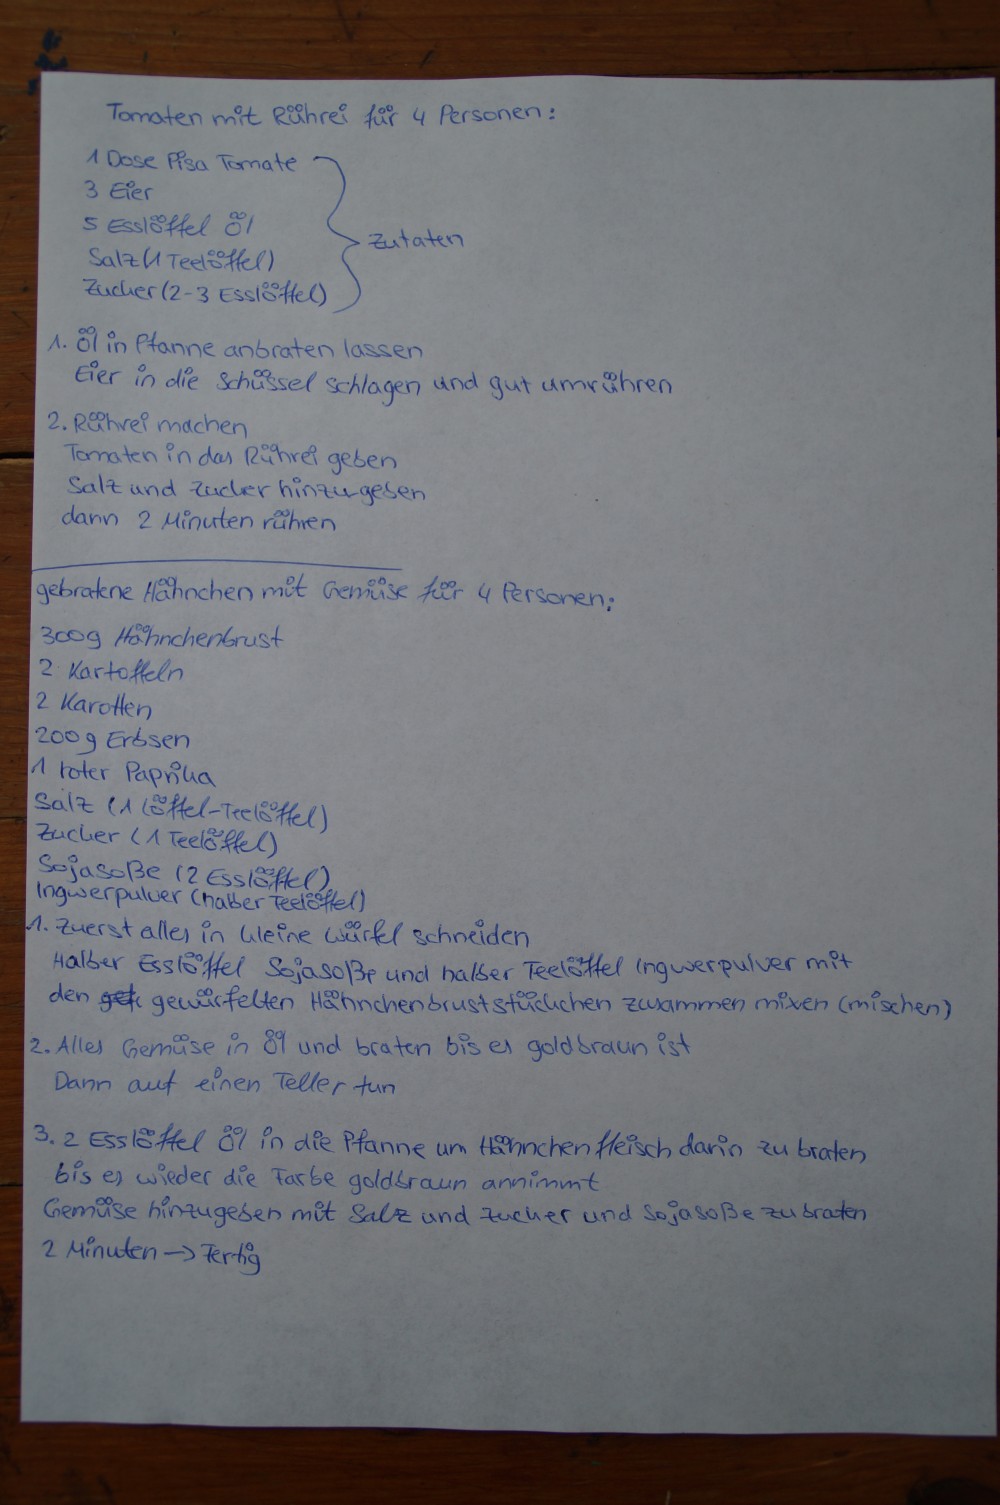 Tomaten mit Rührei für 4 Personen:
1 Dose Pisa Tomate
3 Eier
5 Esslöffel Öl
Zutaten
Salz (1 Teelöffel)
Zucker (2-3 Esslöffel)
1. Öl in Pfanne anbraten lassen
Eier in die Schüssel schlagen und gut umrühren
2. Rührei machen
Tomaten in das Rührei geben
Salz und Zucker hinzugeben
dann 2 Minuten rühren
gebratene Hähnchen mit Gemüse für 4 Personen:
300g Hähnchenbrust
2 Kartoffeln
2 Karotten
200g Erbsen
1 roter Paprika
Salz (1 Löffel-Teelöffel)
Zucker (1 Teelöffel)
Sojasoße (2 Esslöffel)
Ingwerpulver (halber Teelöffel)
1. Zuerst alles in kleine Würfel schneiden
Halber Esslöffel Sojasoße und halber Teelöffel Ingwerpulver mit
den gewürfelten Hähnchenbruststückchen zusammen mixen (mischen)
2. Alles Gemüse in Öl und braten bis es goldbraun ist
Dann auf einen Teller tun
3. 2 Esslöffel Öl in die Pfanne um Hähnchenfleisch darin zu braten
bis es wieder die Farbe goldbraun annimmt
Gemüse hinzugeben mit Salz und Zucker und Sojasoße zu braten
2 Minuten → Fertig